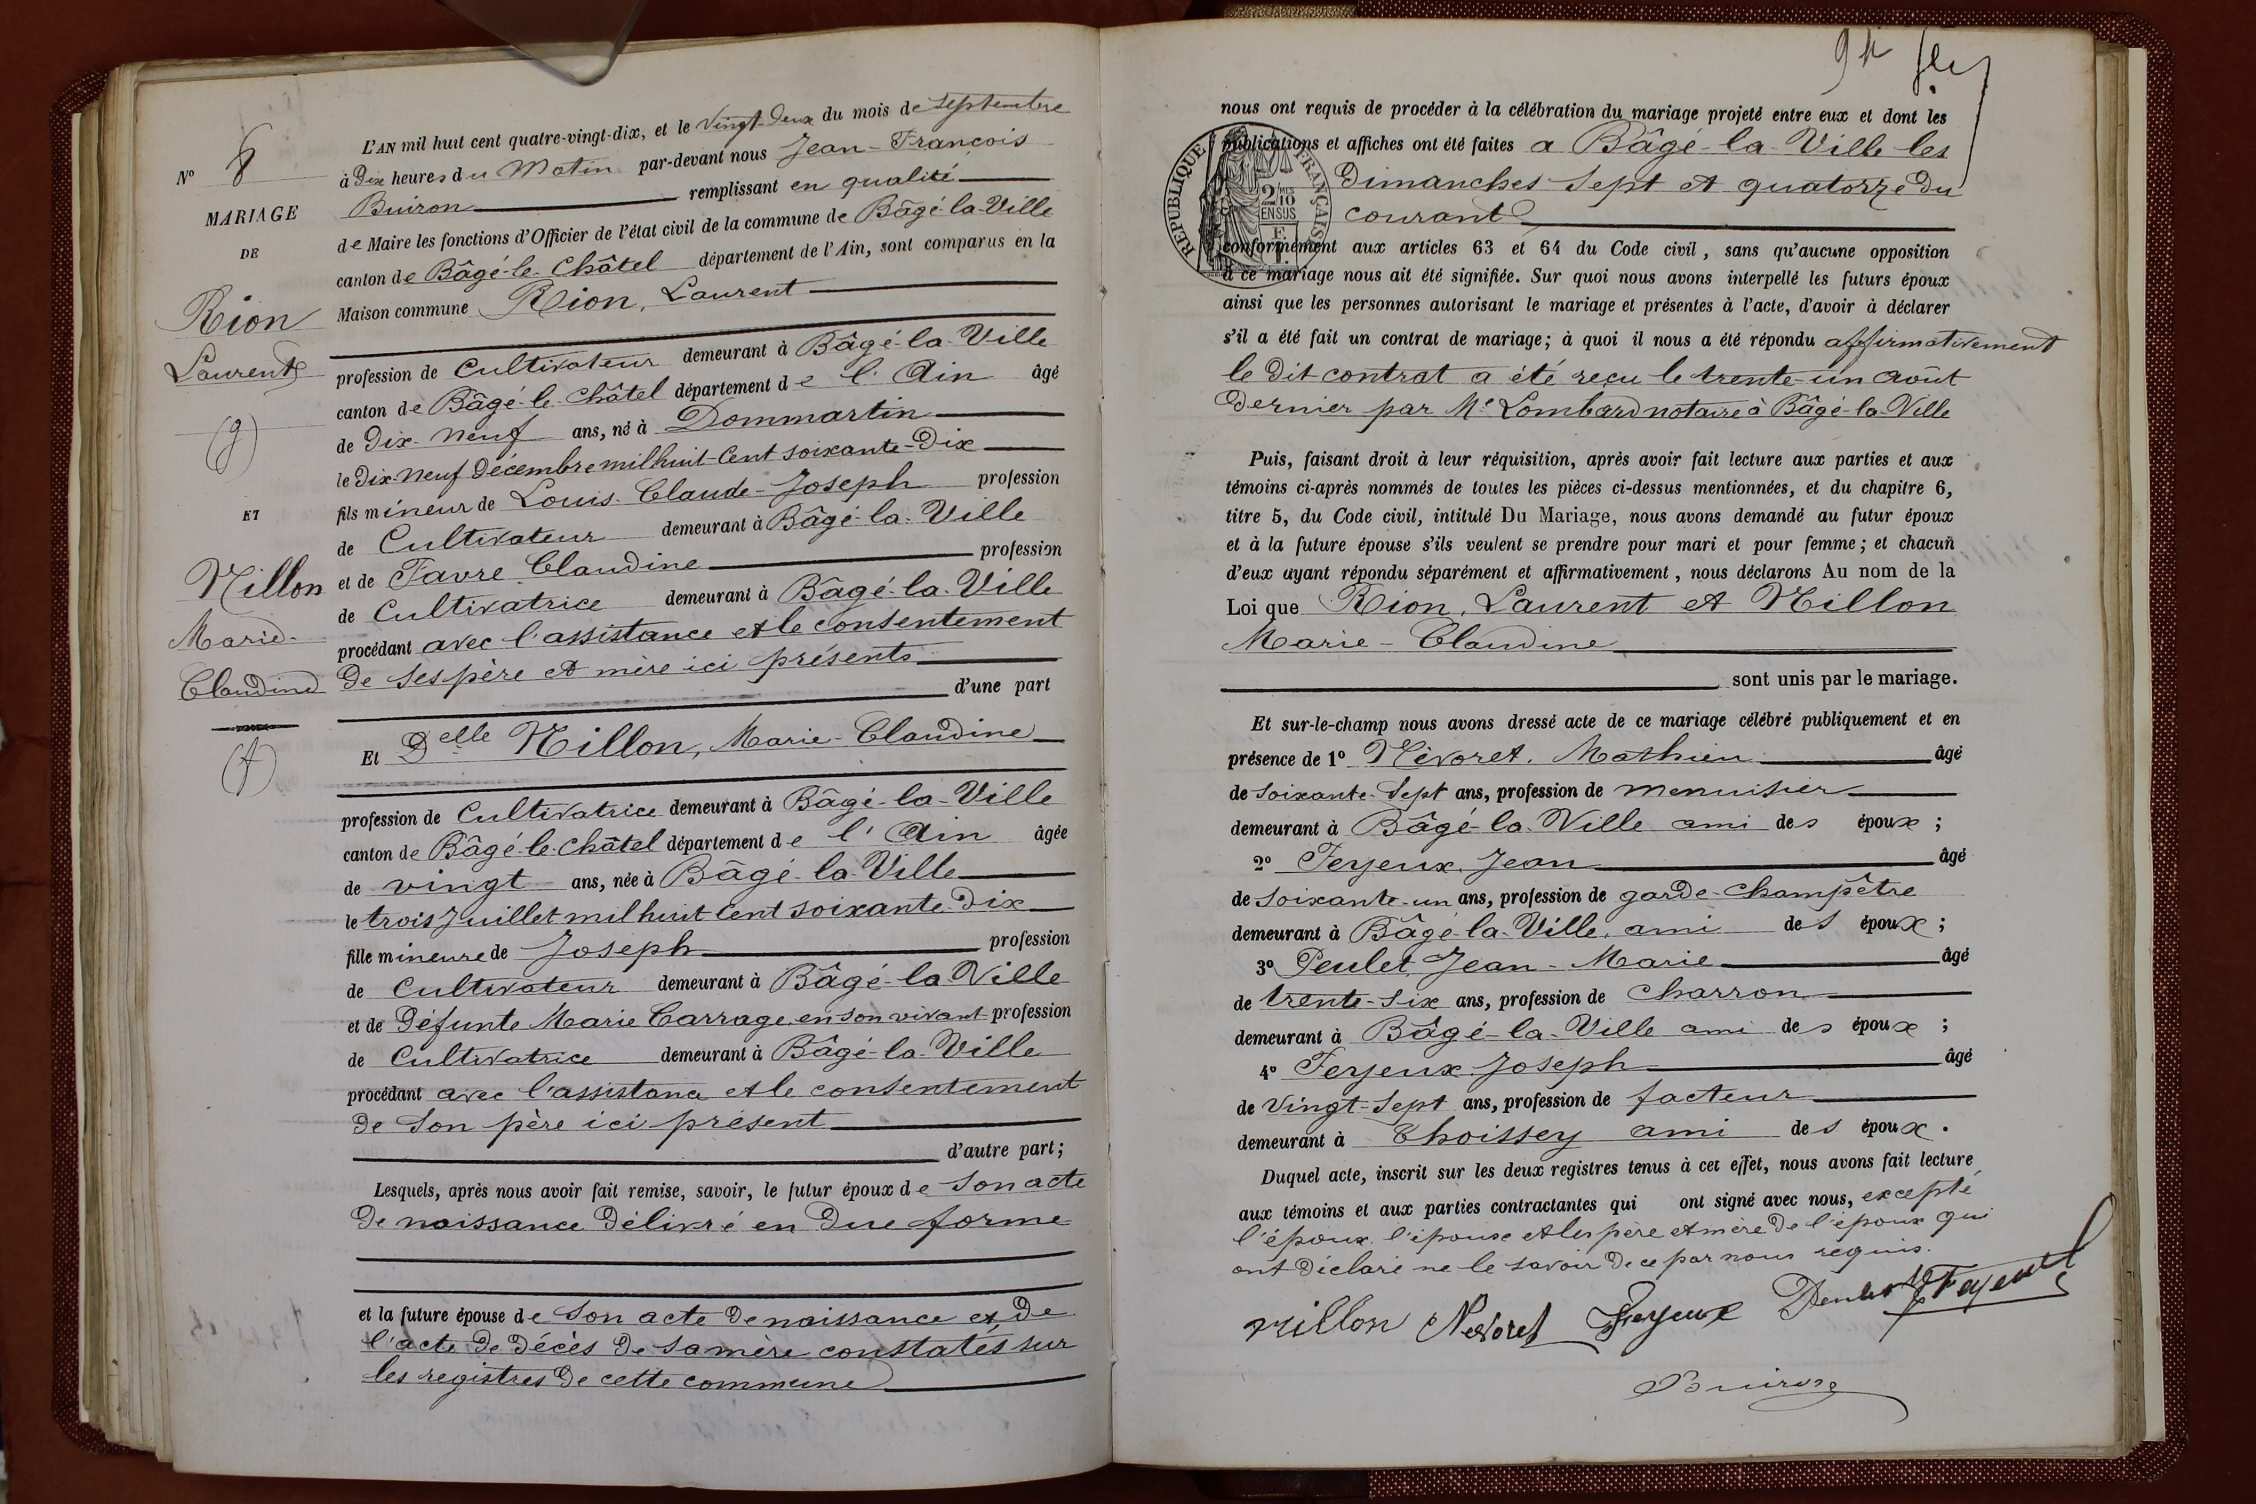 N° 8
MARIAGE
DE
Rion
Laurent
(g)
ET
Nillon
Marie-
Claudine
(f)
L'AN mil huit cent quatre-vingt-dix, et le Vingt-deux du mois de septembre
à Dix heures du Matin par-devant nous Jean-François
Buiron remplissant en qualité
de Maire les fonctions d'Officier de l'état civil de la commune de Bâgé-la-Ville
canton de Bâgé-le-Châtel département de l'Ain, sont comparus en la
Maison commune Rion, Laurent
profession de Cultivateur demeurant à Bâgé-la-Ville
canton de Bâgé-le-Châtel département de l'Ain âgé
de Dix-neuf ans, né à Dommartin
le Dix-neuf Décembre mil huit cent soixante-Dix
fils mineur de Louis-Claude-Joseph profession
de Cultivateur demeurant à Bâgé-la-Ville
et de Favre Claudine profession
de Cultivatrice demeurant à Bâgé-la-Ville
procédant avec l'assistance et le consentement
de ses père et mère ici présents
d'une part
Et Delle Nillon, Marie-Claudine
profession de Cultivatrice demeurant à Bâgé-la-Ville
canton de Bâgé-le-Châtel département de l'Ain âgée
de vingt ans, née à Bâgé-la-Ville
le trois Juillet mil huit cent soixante-Dix
fille mineure de Joseph profession
de Cultivateur demeurant à Bâgé-la-Ville
et de Défunte Marie Carrage, en son vivant profession
de Cultivatrice demeurant à Bâgé-la-Ville
procédant avec l'assistance et le consentement
de son père ici présent
d'autre part;
Lesquels, après nous avoir fait remise, savoir, le futur époux de son acte
de naissance délivré en due forme
et la future épouse de son acte de naissance et de
l'acte de décès de sa mère constatés sur
les registres de cette commune
94
nous ont requis de procéder à la célébration du mariage projeté entre eux et dont les
publications et affiches ont été faites a Bâgé-la-Ville les
Dimanches sept et quatorze du
courant
REPUBLIQUE FRANÇAISE
2/10
EN SUS
conformément aux articles 63 et 64 du Code civil, sans qu'aucune opposition
à ce mariage nous ait été signifiée. Sur quoi nous avons interpellé les futurs époux
ainsi que les personnes autorisant le mariage et présentes à l'acte, d'avoir à déclarer
s'il a été fait un contrat de mariage; à quoi il nous a été répondu affirmativement
le dit contrat a été reçu le trente-un août
dernier par Me Lombard notaire à Bâgé-la-Ville
Puis, faisant droit à leur réquisition, après avoir fait lecture aux parties et aux
témoins ci-après nommés de toutes les pièces ci-dessus mentionnées, et du chapitre 6,
titre 5, du Code civil, intitulé Du Mariage, nous avons demandé au futur époux
et à la future épouse s'ils veulent se prendre pour mari et pour femme; et chacun
d'eux ayant répondu séparément et affirmativement, nous déclarons Au nom de la
Loi que Rion, Laurent et Nillon
Marie-Claudine
sont unis par le mariage.
Et sur-le-champ nous avons dressé acte de ce mariage célébré publiquement et en
présence de 1° Névoret, Mathieu âgé
de soixante-sept ans, profession de menuisier
demeurant à Bâgé-la-Ville ami des époux;
2° Feyeux, Jean âgé
de soixante-un ans, profession de garde-champêtre
demeurant à Bâgé-la-Ville, ami des époux;
3° Peulet, Jean-Marie âgé
de trente-six ans, profession de charron
demeurant à Bâgé-la-Ville ami des époux;
4° Feyeux, Joseph âgé
de vingt-sept ans, profession de facteur
demeurant à Thoissey ami des époux.
Duquel acte, inscrit sur les deux registres tenus à cet effet, nous avons fait lecture
aux témoins et aux parties contractantes qui ont signé avec nous, excepté
l'époux, l'épouse et les père et mère de l'époux qui
ont déclaré ne le savoir de ce par nous requis.
Nillon Nevoret Feyeux Peulet Feyeux
Buiron